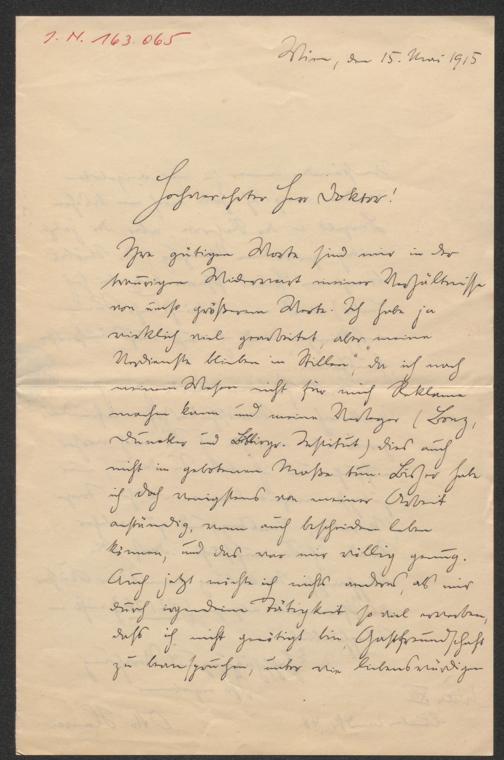 J. N. 163.065
Wien, den 15. Mai 1915
Hochverehrter Herr Doktor!
Ihre gütigen Worte sind mir in der
traurigen Widerwart meiner Verhältnisse
von umso größerem Werte. Ich habe ja
wirklich viel gearbeitet, aber meine
Verdienste blieben im Stillen, da ich nach
meinem Wesen nicht für mich Reklame
machen kann und meine Verleger (Bong,
Duncker und Bibliogr. Institut) dies auch
nicht in gebotenem Maße tun. Bisher habe
ich doch wenigstens von meiner Arbeit
anständig, wenn auch bescheiden leben
können, und das war mir völlig genug.
Auch jetzt möchte ich nichts anders, als mir
durch irgendeine Tätigkeit so viel erwerben,
daß ich nicht genötigt bin Gastfreundschaft
zu beanspruchen, unter wie liebenswürdigen